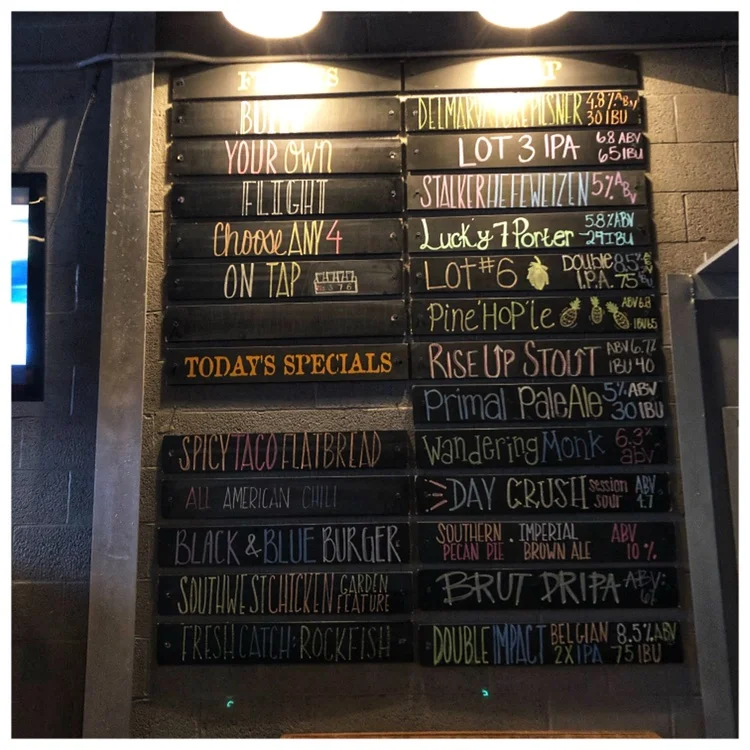 YOUR OWN
FLIGHT
Choose ANY 4
ON TAP
TODAY'S SPECIALS
SPICY TACO FLATBREAD
ALL AMERICAN CHILI
BLACK & BLUE BURGER
SOUTHWEST CHICKEN GARDEN FEATURE
FRESH CATCH: ROCKFISH
PILSNER 4.8% ABV 30 IBU
LOT 3 IPA 6.8 ABV 65 IBU
STALKER HEFEWEIZEN 5% ABV
Lucky 7 Porter 5.8% ABV 29 IBU
LOT #6 DOUBLE I.P.A. 8.5% 75 IBU
Pine'HOP'le ABV 6.8 IBU 65
RISE UP STOUT ABV 6.7% IBU 40
Primal Pale Ale 5% ABV 30 IBU
Wandering Monk 6.3% abv
DAY CRUSH session sour ABV 4.7
SOUTHERN PECAN PIE . IMPERIAL BROWN ALE ABV 10%
BRUT DRIPA ABV:
DOUBLE IMPACT BELGIAN 2X IPA 8.5% ABV 75 IBU